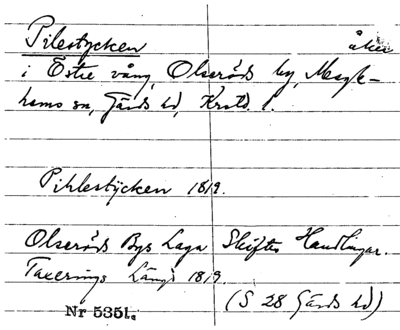 Pilestycken åker
i Östre vång, Olseröds by, Magle-
hems sn, Gärds hd, Krstd. l.
Pihlestÿcken 1819.
Olseröds Bys Laga Skiftes Handlingar.
Taxerings Längd 1819.
(S 28 Gärds hd)
Nr 5351a